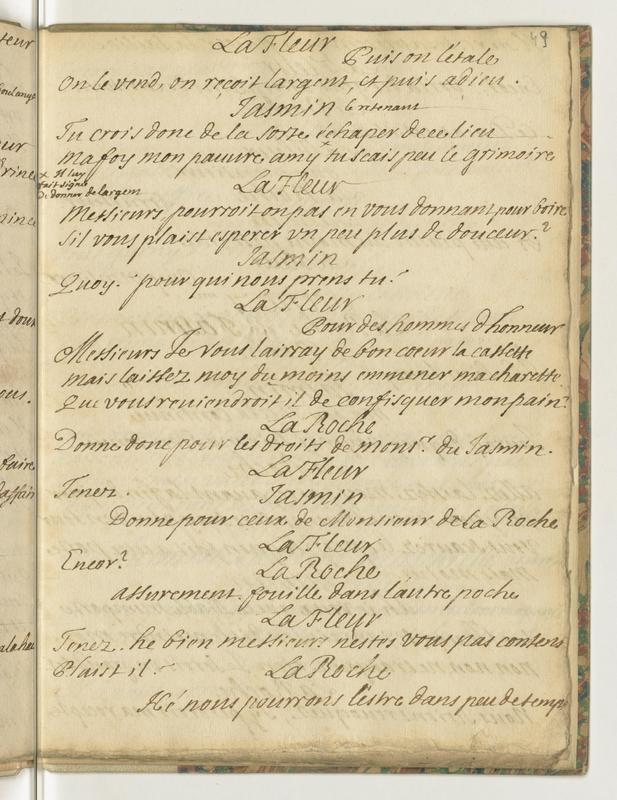 49
La Fleur
Puis on l'étale,
On le vend, on reçoit largent, et puis adieu.
Jasmin le retenant
Tu crois donc de la sorte échaper de ce lieu
Ma foy mon pauure amy x tu scais peu le grimoire
x Il luy
fait signe
de donner de largem
La Fleur
Messieurs pourroit on pas en vous donnant pour boire
Sil vous plaist esperer vn peu plus de douceur?
Jasmin
Quoy. pour qui nous prens tu?
La Fleur
Pour des hommes d'honneur
Messieurs Je vous lairray de bon coeur la cassette
Mais laissez moy du moins emmener ma charette
Que vous reuiendroit il de confisquer mon pain?
La Roche
Donne donc pour les droits de monsr. du Jasmin.
La Fleur
Tenez.
Jasmin
Donne pour ceux de Monsieur de La Roche
La Fleur
Encor?
La Roche
assurement. fouille dans l'autre poche
La Fleur
Tenez. he bien messieurs nestes vous pas contens
Plaist il?
La Roche
Hé nous pourrons l'estre dans peu de temps